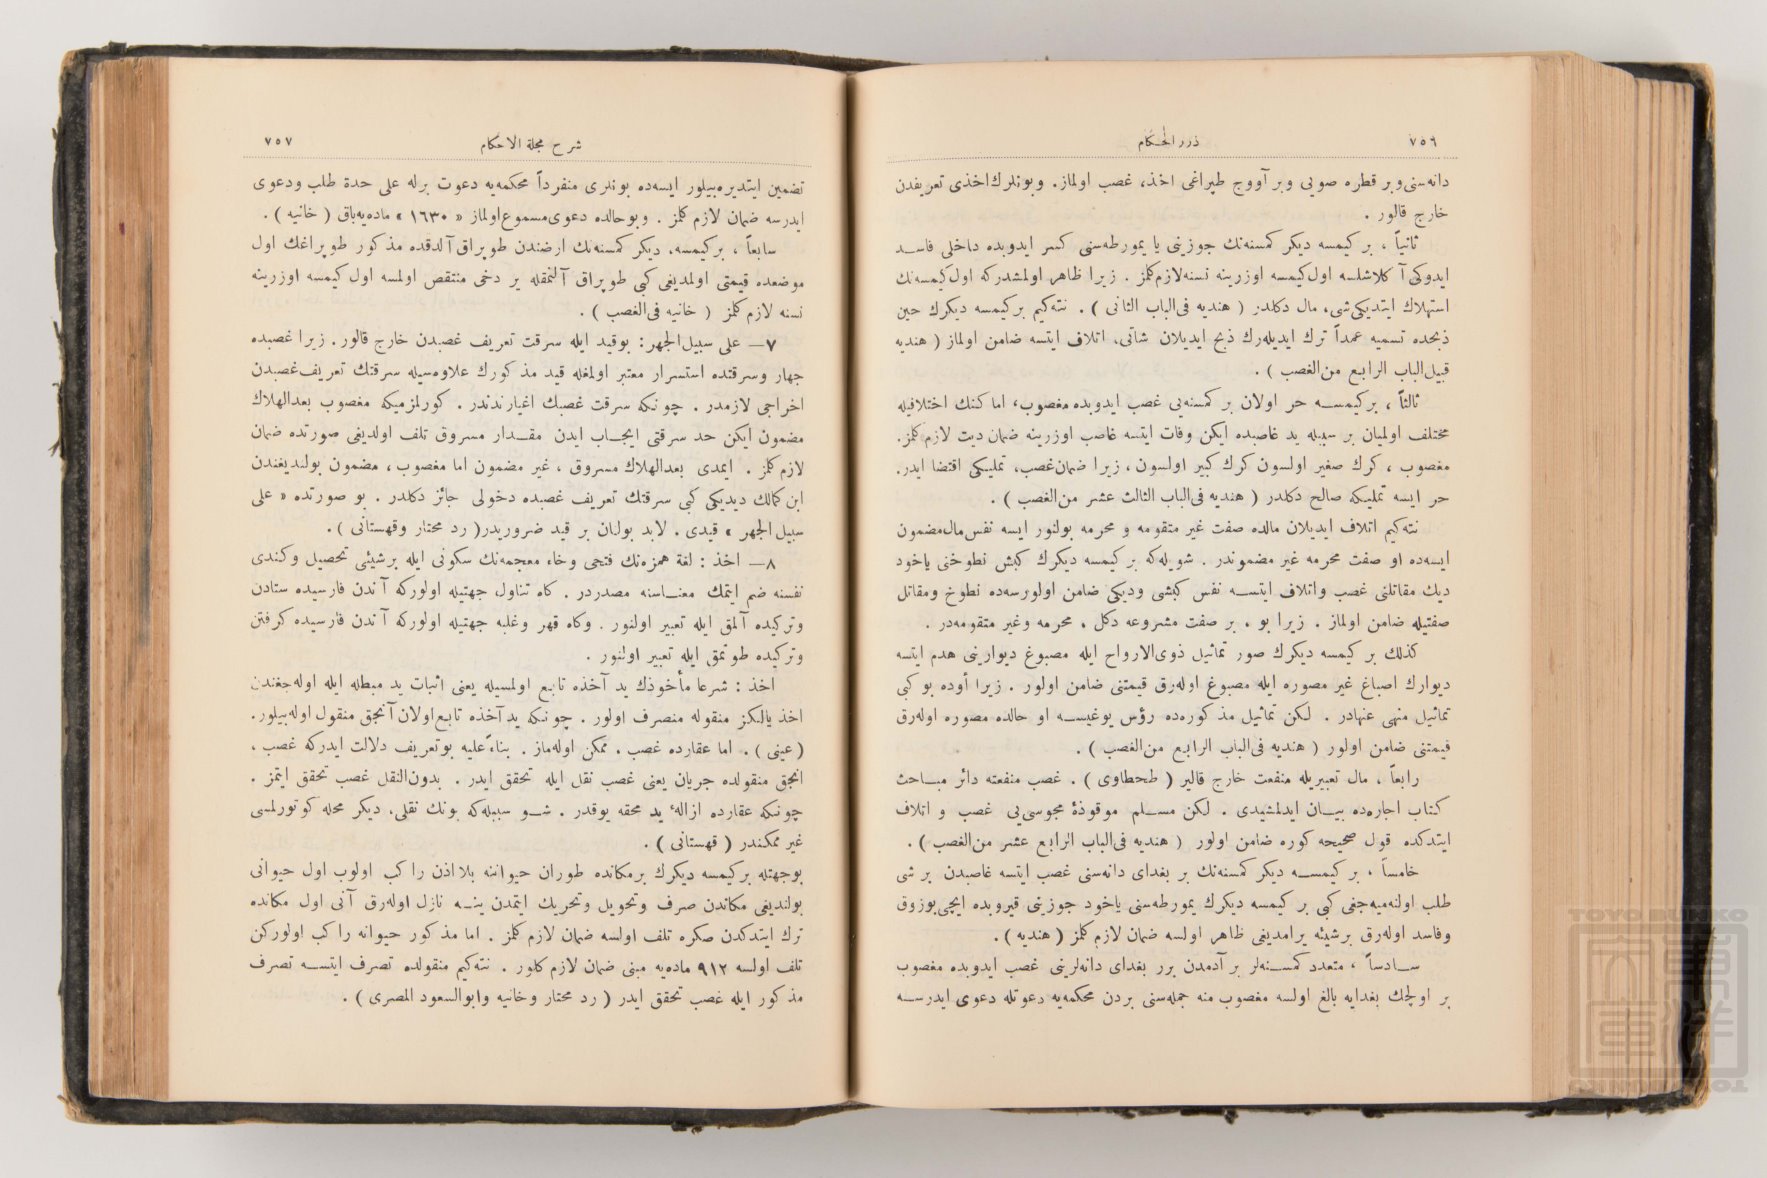 ٧٥٦
درر الحكام
دانه‌سنی وبر قطره صویی وبر آووج طپراغی اخذ، غصب اولماز. وبونلرك اخذی تعریفدن
خارج قالور .
ثانیاً ، بر كیمسه دیكر كمسنه‌نك جوزینی یا یمورطه‌سنی كسر ایدوبده داخلی فاسد
ایدوكی آ كلاشلسه اول كیمسه اوزرینه نسنه لازم كلمز . زیرا ظاهر اولمشدركه اول كیمسه‌نك
استهلاك ایتدیكی شی، مال دكلدر ( هندیه فی الباب الثانی ) . نته‌كیم بر كیمسه دیكرك حین
ذبحده تسمیه عمداً ترك ایدیله‌رك ذبح ایدیلان شاتی، اتلاف ایتسه ضامن اولماز ( هندیه
قبیل الباب الرابع من الغصب ) .
ثالثاً ، بر كیمسه حر اولان بر كمسنه‌یی غصب ایدوبده مغصوب، اما كنك اختلافیله
مختلف اولمیان بر سببله ید غاصبده ایكن وفات ایتسه غاصب اوزرینه ضمان دیت لازم كلمز.
مغصوب ، كرك صغیر اولسون كرك كبیر اولسون ، زیرا ضمان غصب، تملیكی اقتضا ایدر.
حر ایسه تملیكه صالح دكلدر ( هندیه فی الباب الثالث عشر من الغصب ) .
نته كیم اتلاف ایدیلان مالده صفت غیر متقومه و محرمه بولنور ایسه نفس مال مضمون
ایسه‌ده او صفت محرمه غیر مضموندر . شویله‌كه بر كیمسه دیكرك كبش نطوخنی یاخود
دیك مقاتلنی غصب واتلاف ایتسه نفس كبشی ودیكی ضامن اولورسه‌ده نطوخ ومقاتل
صفتیله ضامن اولماز . زیرا بو ، بر صفت مشروعه دكل ، محرمه وغیر متقومه‌در .
كذلك بر كیمسه دیكرك صور تماثیل ذوی الارواح ایله مصبوغ دیوارینی هدم ایتسه
دیوارك اصباغ غیر مصوره ایله مصبوغ اوله‌رق قیمتنی ضامن اولور . زیرا أوده بو كبی
تماثیل منهی عنهادر . لكن تماثیل مذ كوره‌ده رؤس یوغیسه او حالده مصوره اوله‌رق
قیمتنی ضامن اولور ( هندیه فی الباب الرابع من الغصب ) .
رابعاً ، مال تعبیریله منفعت خارج قالیر ( طحطاوی ) . غصب منفعته دائر مباحث
كتاب اجاره‌ده بیان ایدلمشیدی . لكن مسلم موقوذهٔ مجوسی‌یی غصب و اتلاف
ایتدكده قول صحیحه كوره ضامن اولور ( هندیه فی الباب الرابع عشر من الغصب ) .
خامساً ، بر كیمسه دیكر كمسنه‌نك بر بغدای دانه‌سنی غصب ایتسه غاصبدن بر شی
طلب اولنه‌میه‌جغی كبی بر كیمسه دیكرك یمورطه‌سنی یاخود جوزینی قیروبده ایچی بوزوق
وفاسد اوله‌رق بر شیئه یرامدیغی ظاهر اولسه ضمان لازم كلمز ( هندیه ) .
سادساً ، متعدد كمسنه‌لر بر آدمدن برر بغدای دانه‌لرینی غصب ایدوبده مغصوب
بر اولچك بغدایه بالغ اولسه مغصوب منه جمله‌سنی بردن محكمه‌یه دعوتله دعوی ایدرسه
شرح مجلة الاحكام
٧٥٧
تضمین ایتدیره‌بیلور ایسه‌ده بونلری منفرداً محكمه‌یه دعوت برله علی حدة طلب ودعوی
ایدرسه ضمان لازم كلمز . وبو حالده دعوی مسموع اولماز « ١٦٣٠ » ماده‌یه باق ( خانیه ) .
سابعاً ، بر كیمسه، دیكر كمسنه‌نك ارضندن طوپراق آلدقده مذ كور طوپراغك اول
موضعده قیمتی اولمدیغی كبی طوپراق آلنمقله یر دخی منتقص اولمسه اول كیمسه اوزرینه
نسنه لازم كلمز ( خانیه فی الغصب ) .
٧ — علی سبیل الجهر: بوقید ایله سرقت تعریف غصبدن خارج قالور. زیرا غصبده
جهار وسرقتده استسرار معتبر اولمغله قید مذ كورك علاوه‌سیله سرقتك تعریف غصبدن
اخراجی لازمدر . چونكه سرقت غصبك اغیارندندر . كورلمزمیكه مغصوب بعد الهلاك
مضمون ایكن حد سرقتی ایجاب ایدن مقدار مسروق تلف اولدیغی صورتده ضمان
لازم كلمز . ایمدی بعد الهلاك مسروق ، غیر مضمون اما مغصوب ، مضمون بولندیغندن
ابن كمالك دیدیكی كبی سرقتك تعریف غصبده دخولی جائز دكلدر . بو صورتده « علی
سبیل الجهر » قیدی . لابد بولنان بر قید ضروریدر( رد محتار وقهستانی ) .
٨ — اخذ : لغة همزه‌نك فتحی وخاء معجمه‌نك سكونی ایله بر شیئی تحصیل وكندی
نفسنه ضم ایتمك معناسنه مصدردر . كاه تناول جهتیله اولوركه آندن فارسیده ستادن
وتركیده آلمق ایله تعبیر اولنور . وكاه قهر وغلبه جهتیله اولوركه آندن فارسیده كرفتن
وتركیده طوتمق ایله تعبیر اولنور .
اخذ : شرعا مأخوذك ید آخذه تابع اولمسیله یعنی اثبات ید مبطله ایله اوله‌جغندن
اخذ یالكز منقوله منصرف اولور . چونكه ید آخذه تابع اولان آنجق منقول اوله‌بیلور.
( عینی ) . اما عقارده غصب ، ممكن اوله‌ماز . بناءً علیه بو تعریف دلالت ایدركه غصب ،
انجق منقولده جریان یعنی غصب نقل ایله تحقق ایدر . بدون النقل غصب تحقق ایتمز .
چونكه عقارده ازالهٔ ید محقه یوقدر . شو سببله‌كه بونك نقلی، دیكر محله كوتورلمسی
غیر ممكندر ( قهستانی ) .
بوجهتله بر كیمسه دیكرك بر مكانده طوران حیواننه بلا اذن راكب اولوب اول حیوانی
بولندیغی مكاندن صرف وتحویل وتحریك ایتمدن ینه نازل اوله‌رق آنی اول مكانده
ترك ایتدكدن صكره تلف اولسه ضمان لازم كلمز . اما مذ كور حیوانه راكب اولوركن
تلف اولسه ٩١٢ ماده‌یه مبنی ضمان لازم كلور . نته‌كیم منقولده تصرف ایتسه تصرف
مذ كور ایله غصب تحقق ایدر ( رد محتار وخانیه وابوالسعود المصری ) .
TOYO BUNKO